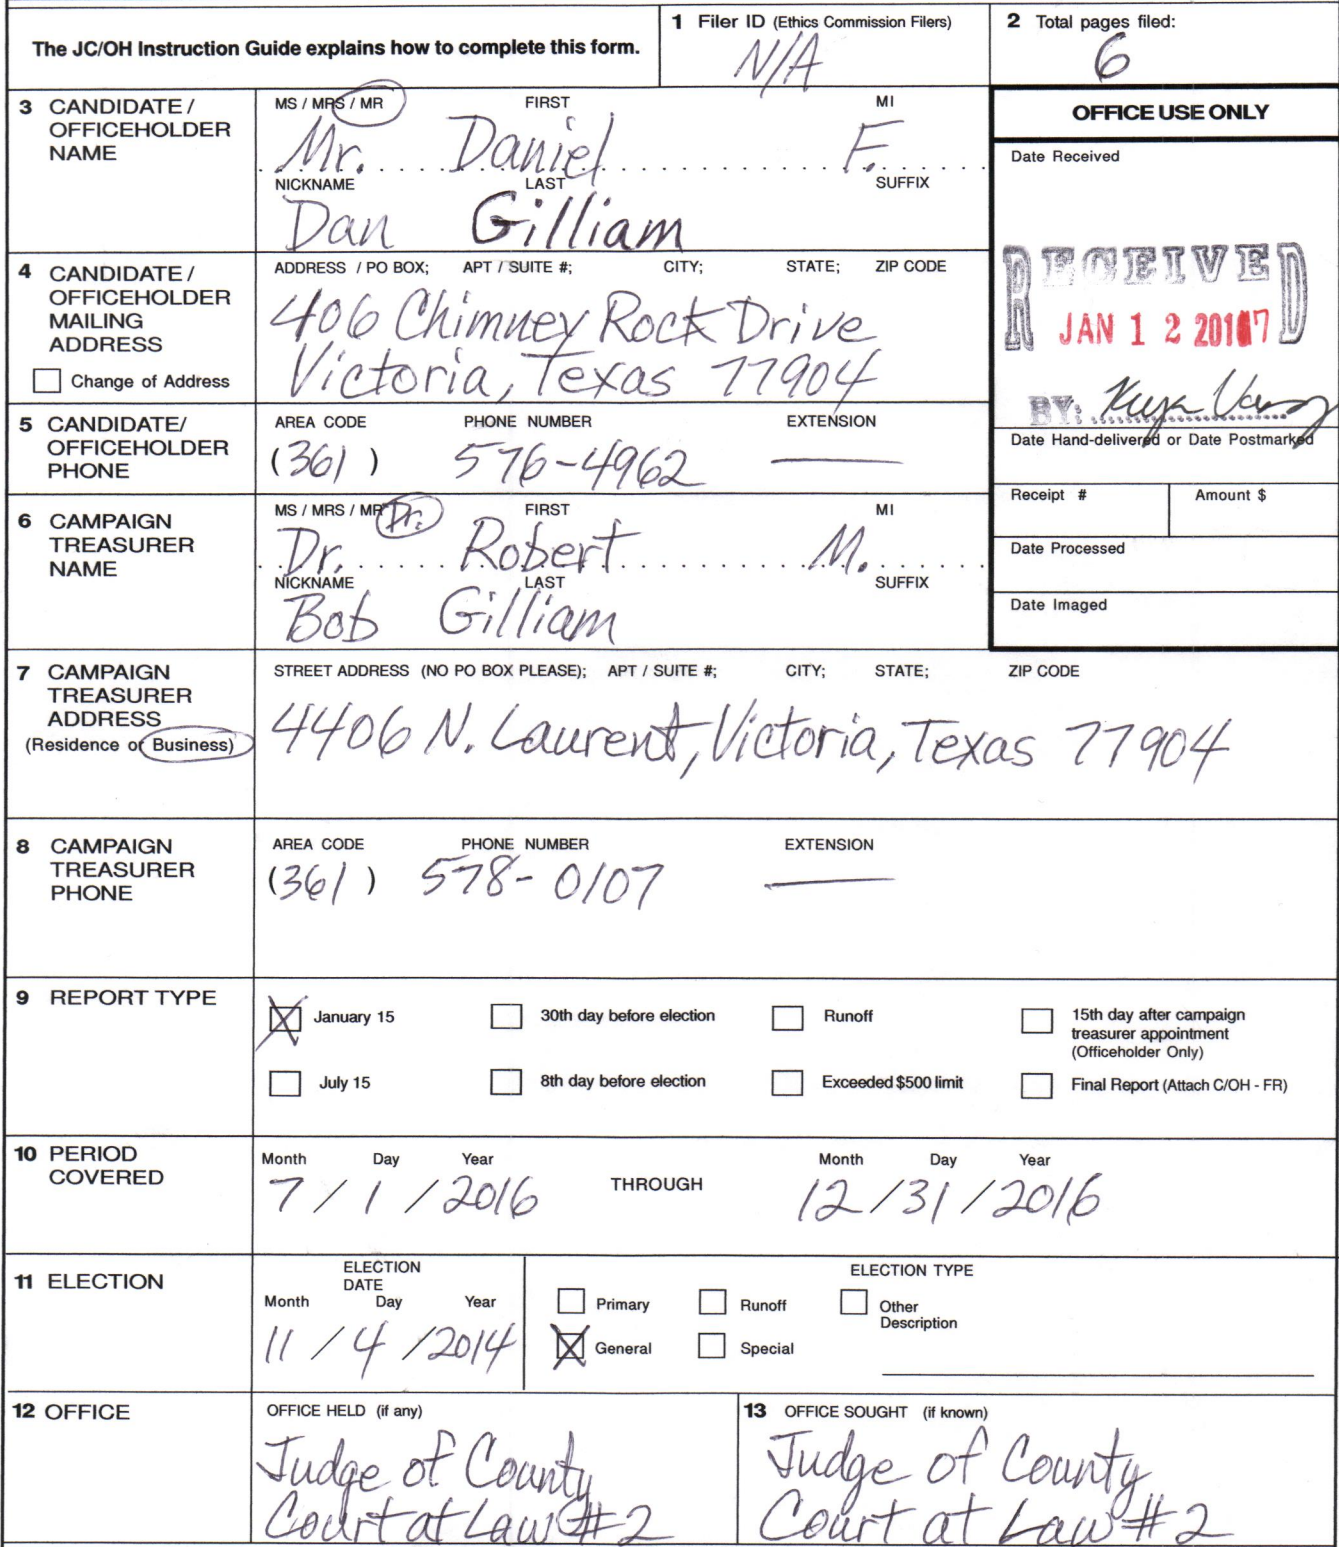 The JC/OH Instruction Guide explains how to complete this form.
1 Filer ID (Ethics Commission Filers)
N/A
2 Total pages filed:
6
3 CANDIDATE / OFFICEHOLDER NAME
MS / MRS / MR FIRST MI
Mr. Daniel F.
NICKNAME LAST SUFFIX
Dan Gilliam
OFFICE USE ONLY
Date Received
RECEIVED
JAN 12 2017
BY:
Date Hand-delivered or Date Postmarked
Receipt # Amount $
Date Processed
Date Imaged
4 CANDIDATE / OFFICEHOLDER MAILING ADDRESS
Change of Address
ADDRESS / PO BOX; APT / SUITE #; CITY; STATE; ZIP CODE
406 Chimney Rock Drive
Victoria, Texas 77904
5 CANDIDATE/ OFFICEHOLDER PHONE
AREA CODE PHONE NUMBER EXTENSION
(361) 576-4962 —
6 CAMPAIGN TREASURER NAME
MS / MRS / MR Dr. FIRST MI
Dr. Robert M.
NICKNAME LAST SUFFIX
Bob Gilliam
7 CAMPAIGN TREASURER ADDRESS
(Residence or Business)
STREET ADDRESS (NO PO BOX PLEASE); APT / SUITE #; CITY; STATE; ZIP CODE
4406 N. Laurent, Victoria, Texas 77904
8 CAMPAIGN TREASURER PHONE
AREA CODE PHONE NUMBER EXTENSION
(361) 578-0107 —
9 REPORT TYPE
January 15 30th day before election Runoff 15th day after campaign treasurer appointment (Officeholder Only)
July 15 8th day before election Exceeded $500 limit Final Report (Attach C/OH - FR)
10 PERIOD COVERED
Month Day Year Month Day Year
7 / 1 / 2016 THROUGH 12 / 31 / 2016
11 ELECTION
ELECTION DATE
Month Day Year
11 / 4 / 2014
ELECTION TYPE
Primary Runoff Other Description
General Special
12 OFFICE
OFFICE HELD (if any)
Judge of County
Court at Law #2
13 OFFICE SOUGHT (if known)
Judge of County
Court at Law #2